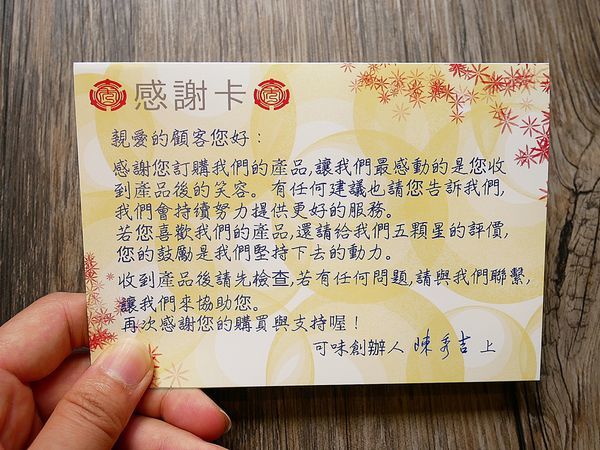 感謝卡
親愛的顧客您好：
感謝您訂購我們的產品,讓我們最感動的是您收
到產品後的笑容。有任何建議也請您告訴我們,
我們會持續努力提供更好的服務。
若您喜歡我們的產品,還請給我們五顆星的評價,
您的鼓勵是我們堅持下去的動力。
收到產品後請先檢查,若有任何問題,請與我們聯繫,
讓我們來協助您。
再次感謝您的購買與支持喔！
可味創辦人 陳彥吉 上